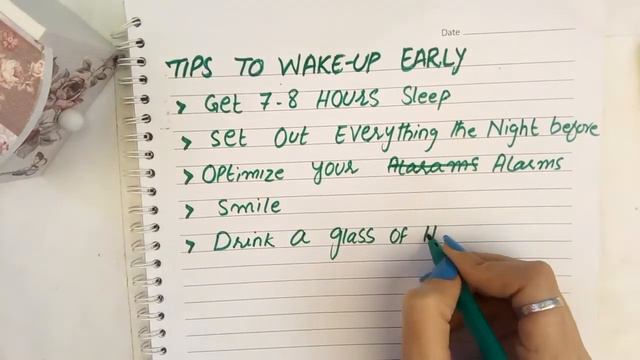 Date
TIPS TO WAKE-UP EARLY
> Get 7-8 HOURS Sleep
> Set Out Everything the Night before
> Optimize your Atarams Alarms
> Smile
> Drink a glass of